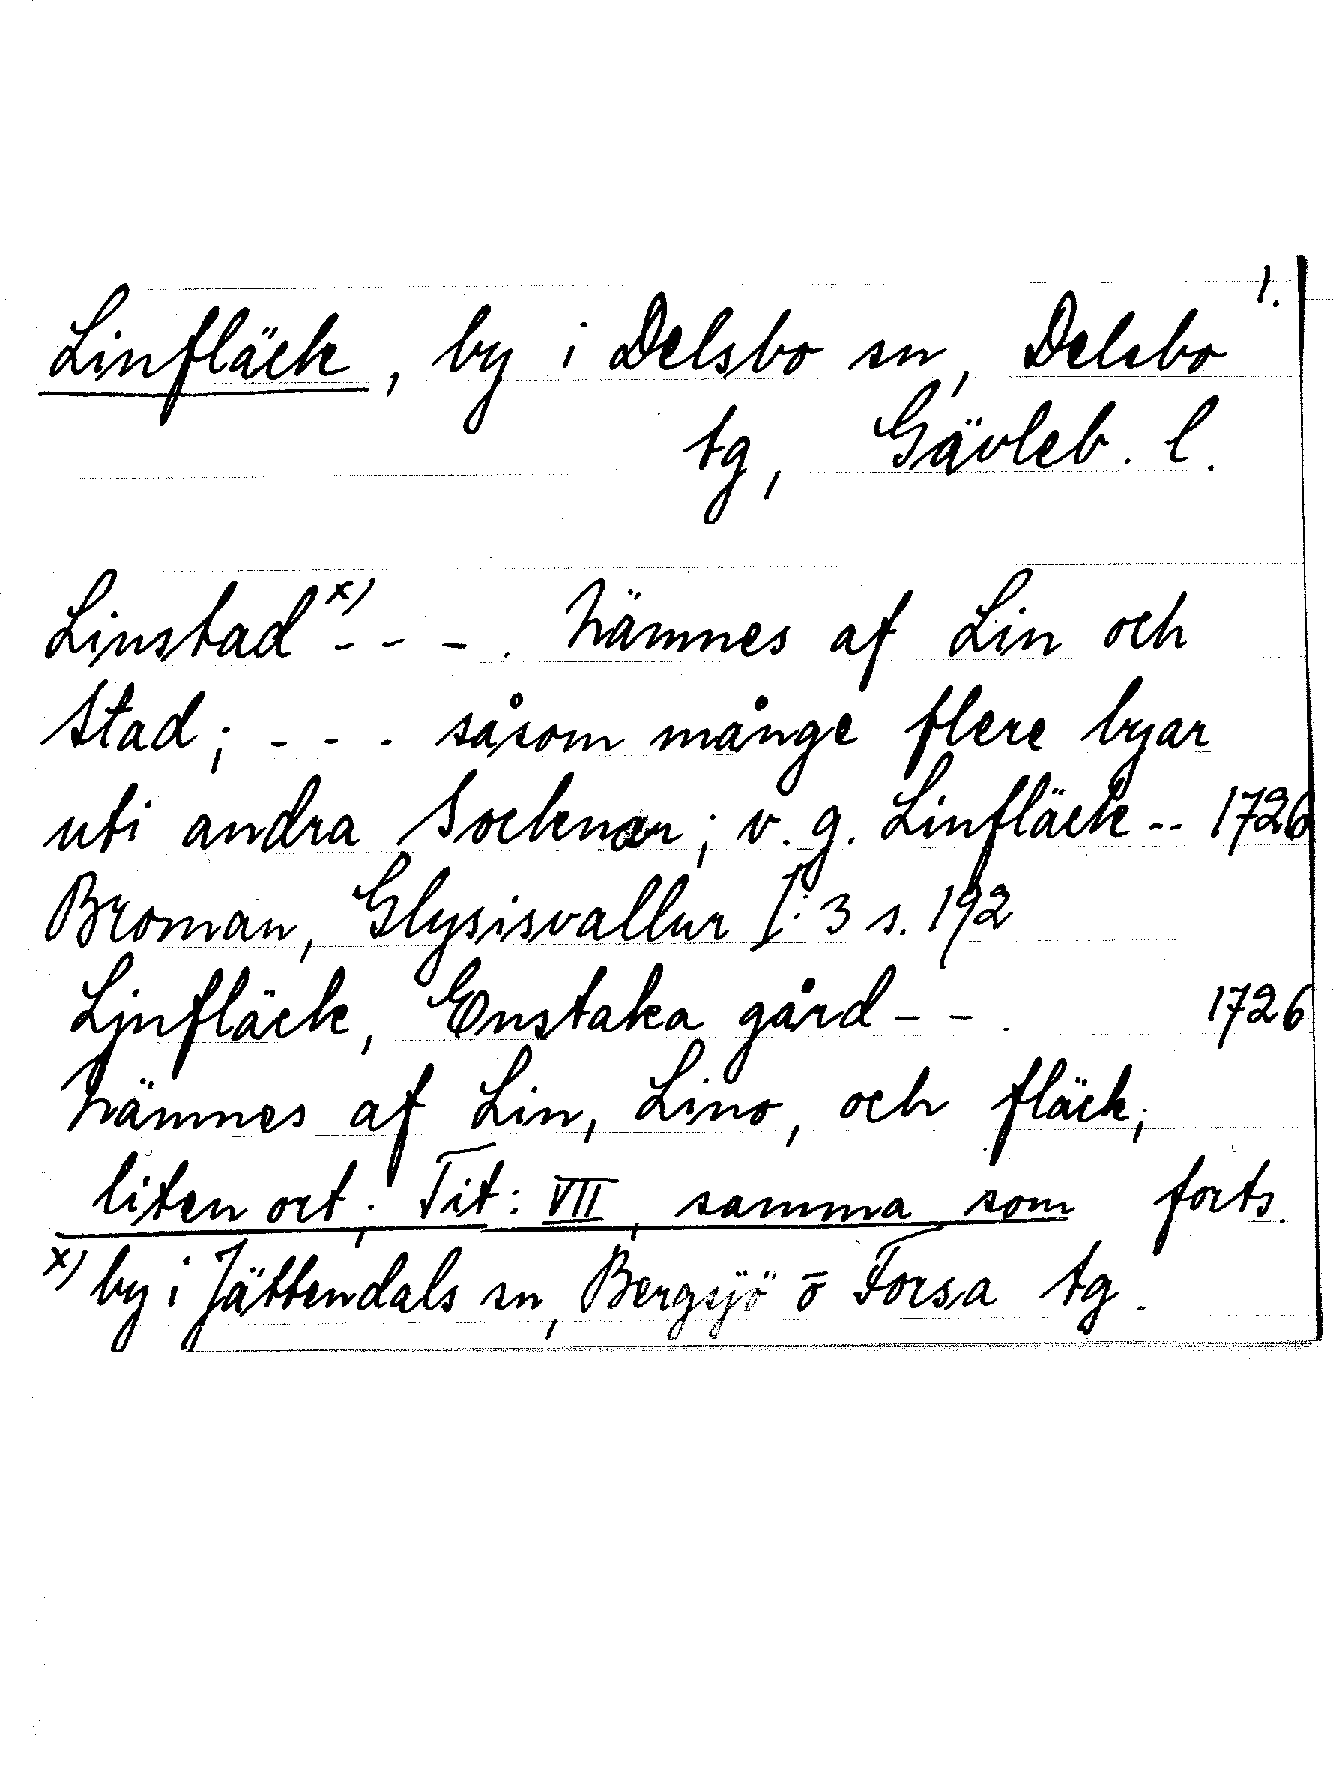 1.
Linfläck, by i Delsbo sn, Delsbo
tg, Gävleb. l.
Linstad x) - - - . Nämnes af Lin och
Stad; - - - såsom månge flere byar
uti andra Socknar; v. g. Linfläck -- 1726
Broman, Glysisvallur I: 3 s. 192
Ljnfläck, Enstaka gård - - . 1726
Nämnes af Lin, Lino, och fläck;
liten ort; Tit: VII, samma som forts.
x) by i Jättendals sn, Bergsjö o Forsa tg.